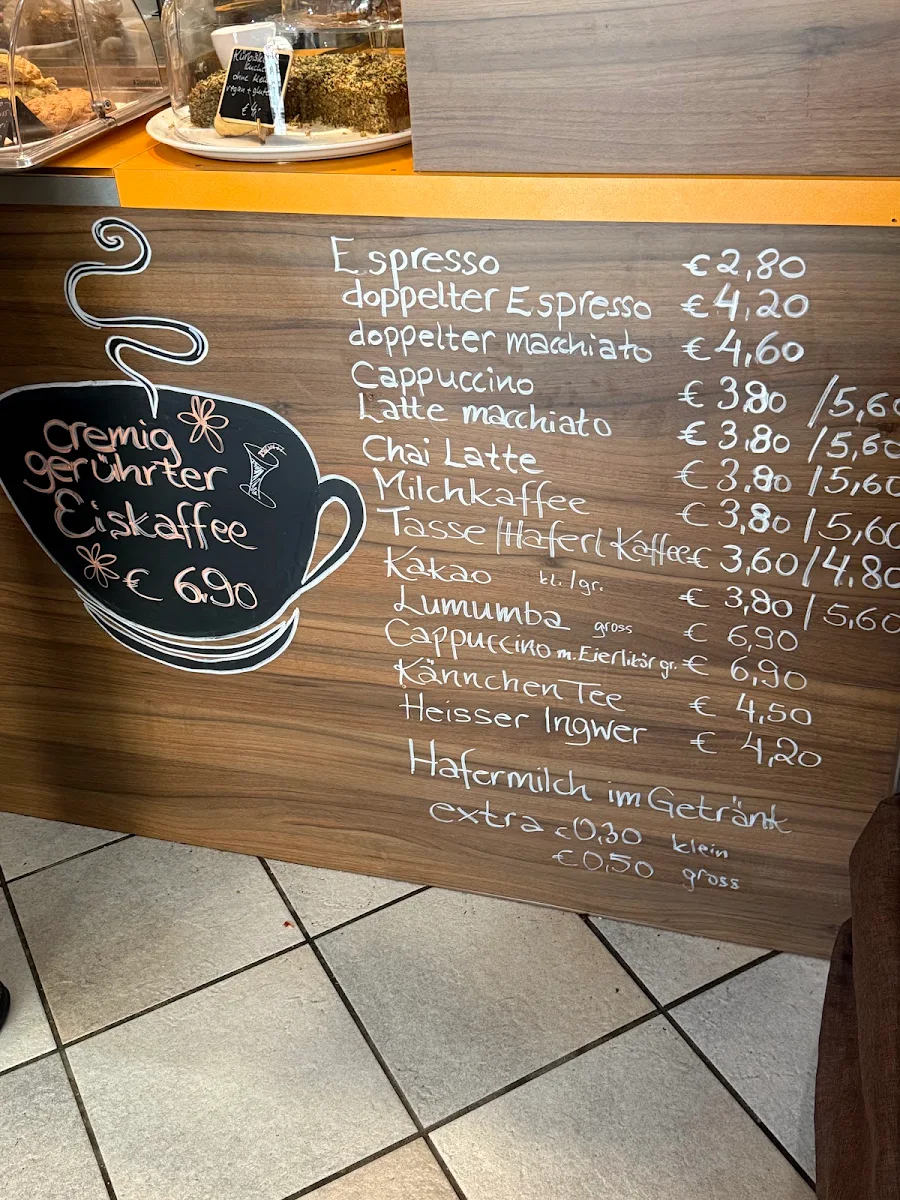 ohne
vegan + glut
€ 4,-
cremig
gerührter
Eiskaffee
€ 6,90
Espresso € 2,80
doppelter Espresso € 4,20
doppelter macchiato € 4,60
Cappuccino € 3,80 / 5,60
Latte macchiato € 3,80 / 5,60
Chai Latte € 3,80 / 5,60
Milchkaffee € 3,80 / 5,60
Tasse / Haferl Kaffee € 3,60 / 4,80
Kakao kl./gr. € 3,80 / 5,60
Lumumba gross € 6,90
Cappuccino m. Eierlikör gr. € 6,90
Kännchen Tee € 4,50
Heisser Ingwer € 4,20
Hafermilch im Getränk
extra € 0,30 klein
€ 0,50 gross